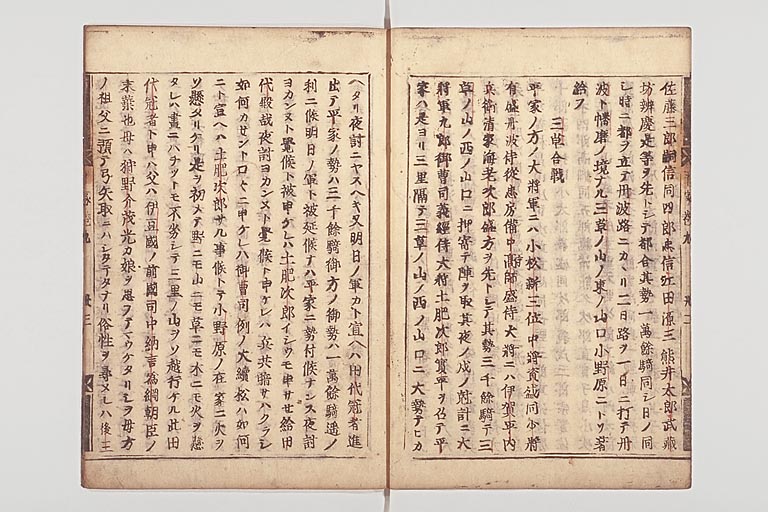 佐藤三郎嗣信同四郎忠信江田源三熊井太郎武蔵
坊辨慶是等ヲ先トシテ都合其勢一萬餘騎同シ日ノ同
シ時ニ都ヲ立テ丹波路ニカヽリ二日路ヲ一日ニ打テ丹
波ト幡磨ノ境ナル三草ノ山ノ東ノ山口小野原ニトソ著
給フ
三草合戦
平家ノ方ノ大將軍ニハ小松新三位中將資盛同少將
有盛丹波侍從忠房備中守師盛侍大將ニハ伊賀平内
兵衛清家海老次郎盛方ヲ先トシテ其勢三千餘騎テ三
草ノ山ノ西ノ山口ニ押寄テ陣ヲ取其夜ノ戌ノ尅計ニ大
將軍九郎御曹司義經侍大將土肥次郎實平ヲ召テ平
家ハ是ヨリ三里隔テ三草ノ山ノ西ノ山口ニ大勢テヒカ
ヘタリ夜討ニヤスヘキ又明日ノ軍カト宣ヘハ田代冠者進
出テ平家ノ勢ハ三千餘騎御方ノ御勢ハ一萬餘騎遙ノ
利ニ候明日ノ軍ト被延候ナハ平家ニ勢付候ナンス夜討
ヨカンヌト覺候ト被申ケレハ土肥次郎イシウモ申サせ給田
代殿哉夜討ヨカンヌト覺候ト申ケレハ兵共暗サハクラシ
如何カせントロ々ニ申ケレハ御曹司例ノ大續松ハ如何
ニト宣ヘハ土肥次郎サル事候トテ小野原ノ在家ニ火ヲ
ソ懸タリケリ是ヲ初メテ野ニモ山ニモ草ニモ木ニモ火ヲ懸
タレハ晝ニハチツトモ不劣シテ三里ノ山ヲソ越行ケル此田
代冠者ト申ハ父ハ伊豆國ノ前國司中納言為綱朝臣ノ
末葉也母ハ狩野介茂光カ娘ヲ思フテマウケタリシヲ母方
ノ祖父ニ預テ弓矢取ニハシタテタナリ俗性ヲ尋メレハ後三